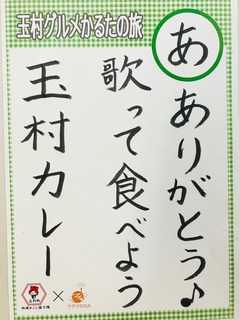 玉村グルメかるたの旅
あ
ありがとう♪
歌って食べよう
玉村カレー
×